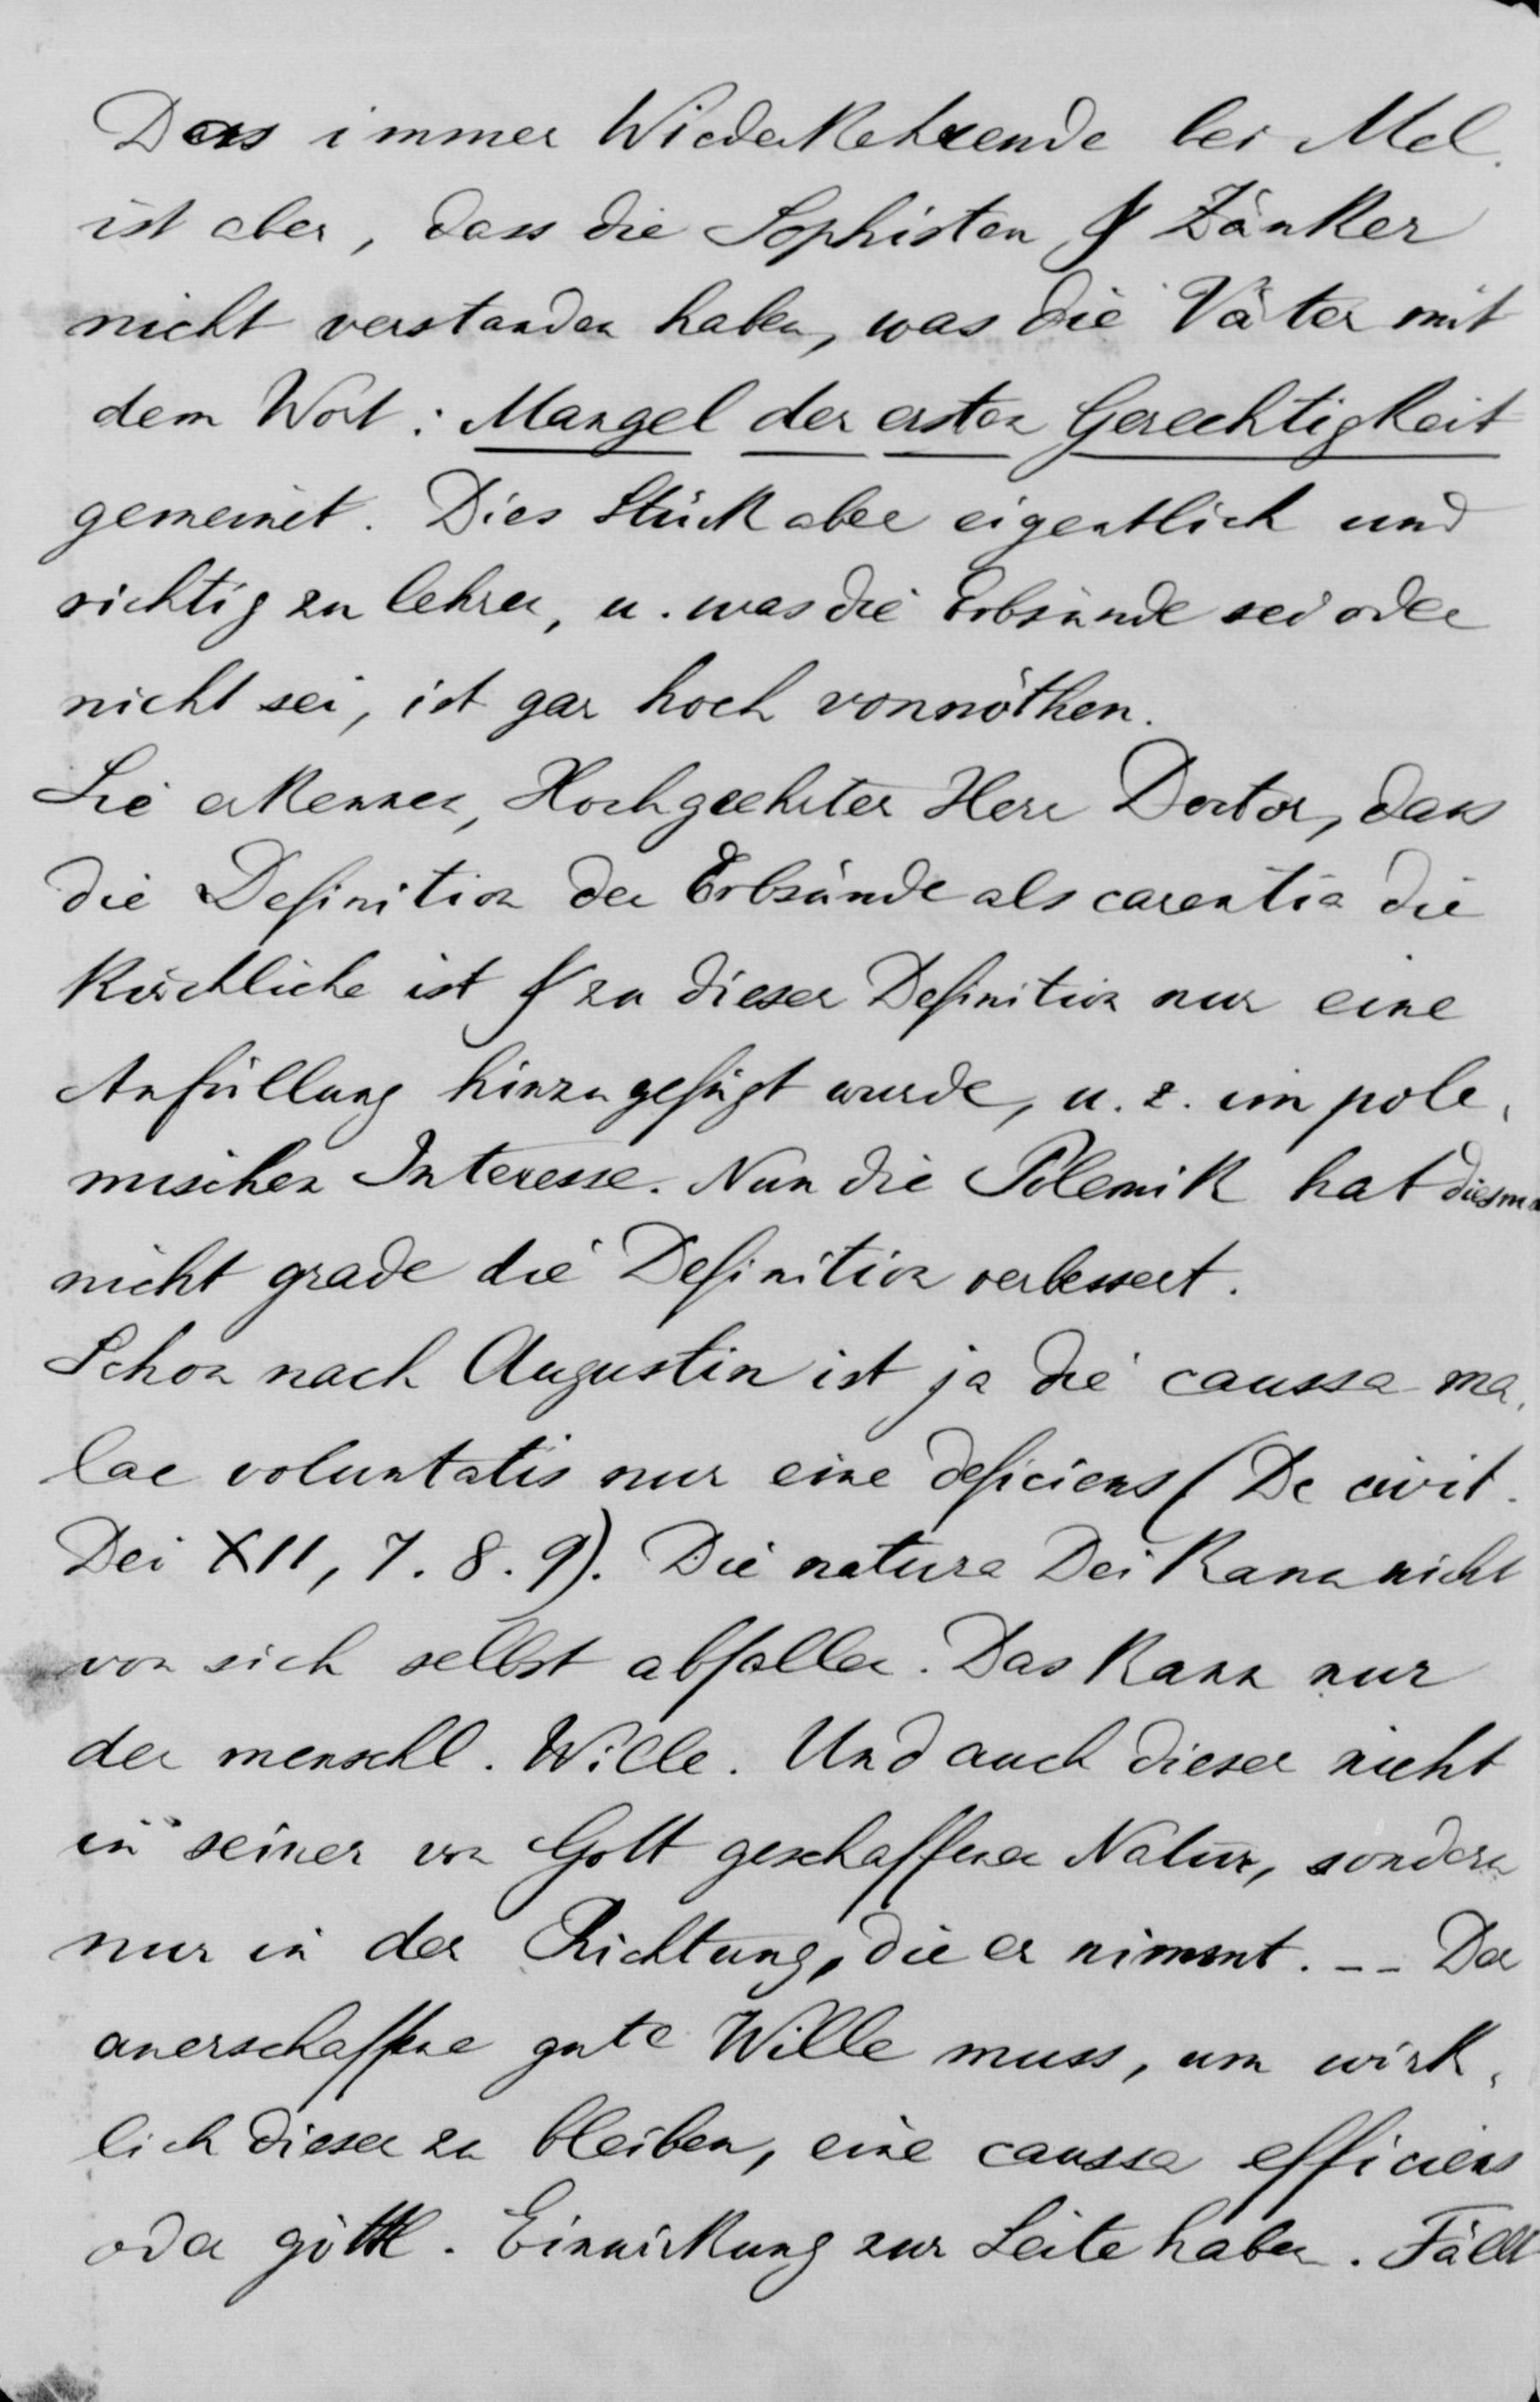 Das immer Wiederkehrende bei Mel.
ist aber, dass die Sophisten & Zänker
nicht verstanden haben, was die Väter mit
dem Wort: Mangel der ersten Gerechtigkeit
gemeinet. Dies Stück aber eigentlich und
richtig zu lehren, u. was die Erbsünde sei oder
nicht sei, ist gar hoch vonnöthen.
Sie erkennen, Hochgeehrter Herr Doctor, dass
die Definition der Erbsünde als carentia die
kirchliche ist & zu dieser Definition nur eine
Anfüllung hinzugefügt wurde, u. z. im pole-
mischen Interesse. Nun die Polemik hat diesma
nicht grade die Definition verbessert.
Schon nach Augustin ist ja die caussa ma-
lae voluntatis nur eine deficiens (De civit.
Dei XII, 7. 8. 9). Die natura Dei kann nicht
von sich selbst abfallen. Das kann nur
der menschl. Wille. Und auch dieser nicht
in seiner von Gott geschaffenen Natur, sondern
nur in der Richtung, die er nimmt. -- Der
anerschaffene gute Wille muss, um wirk-
lich dieser zu bleiben, eine caussa efficiens
oder göttl. Einwirkung zur Seite haben. Fällt